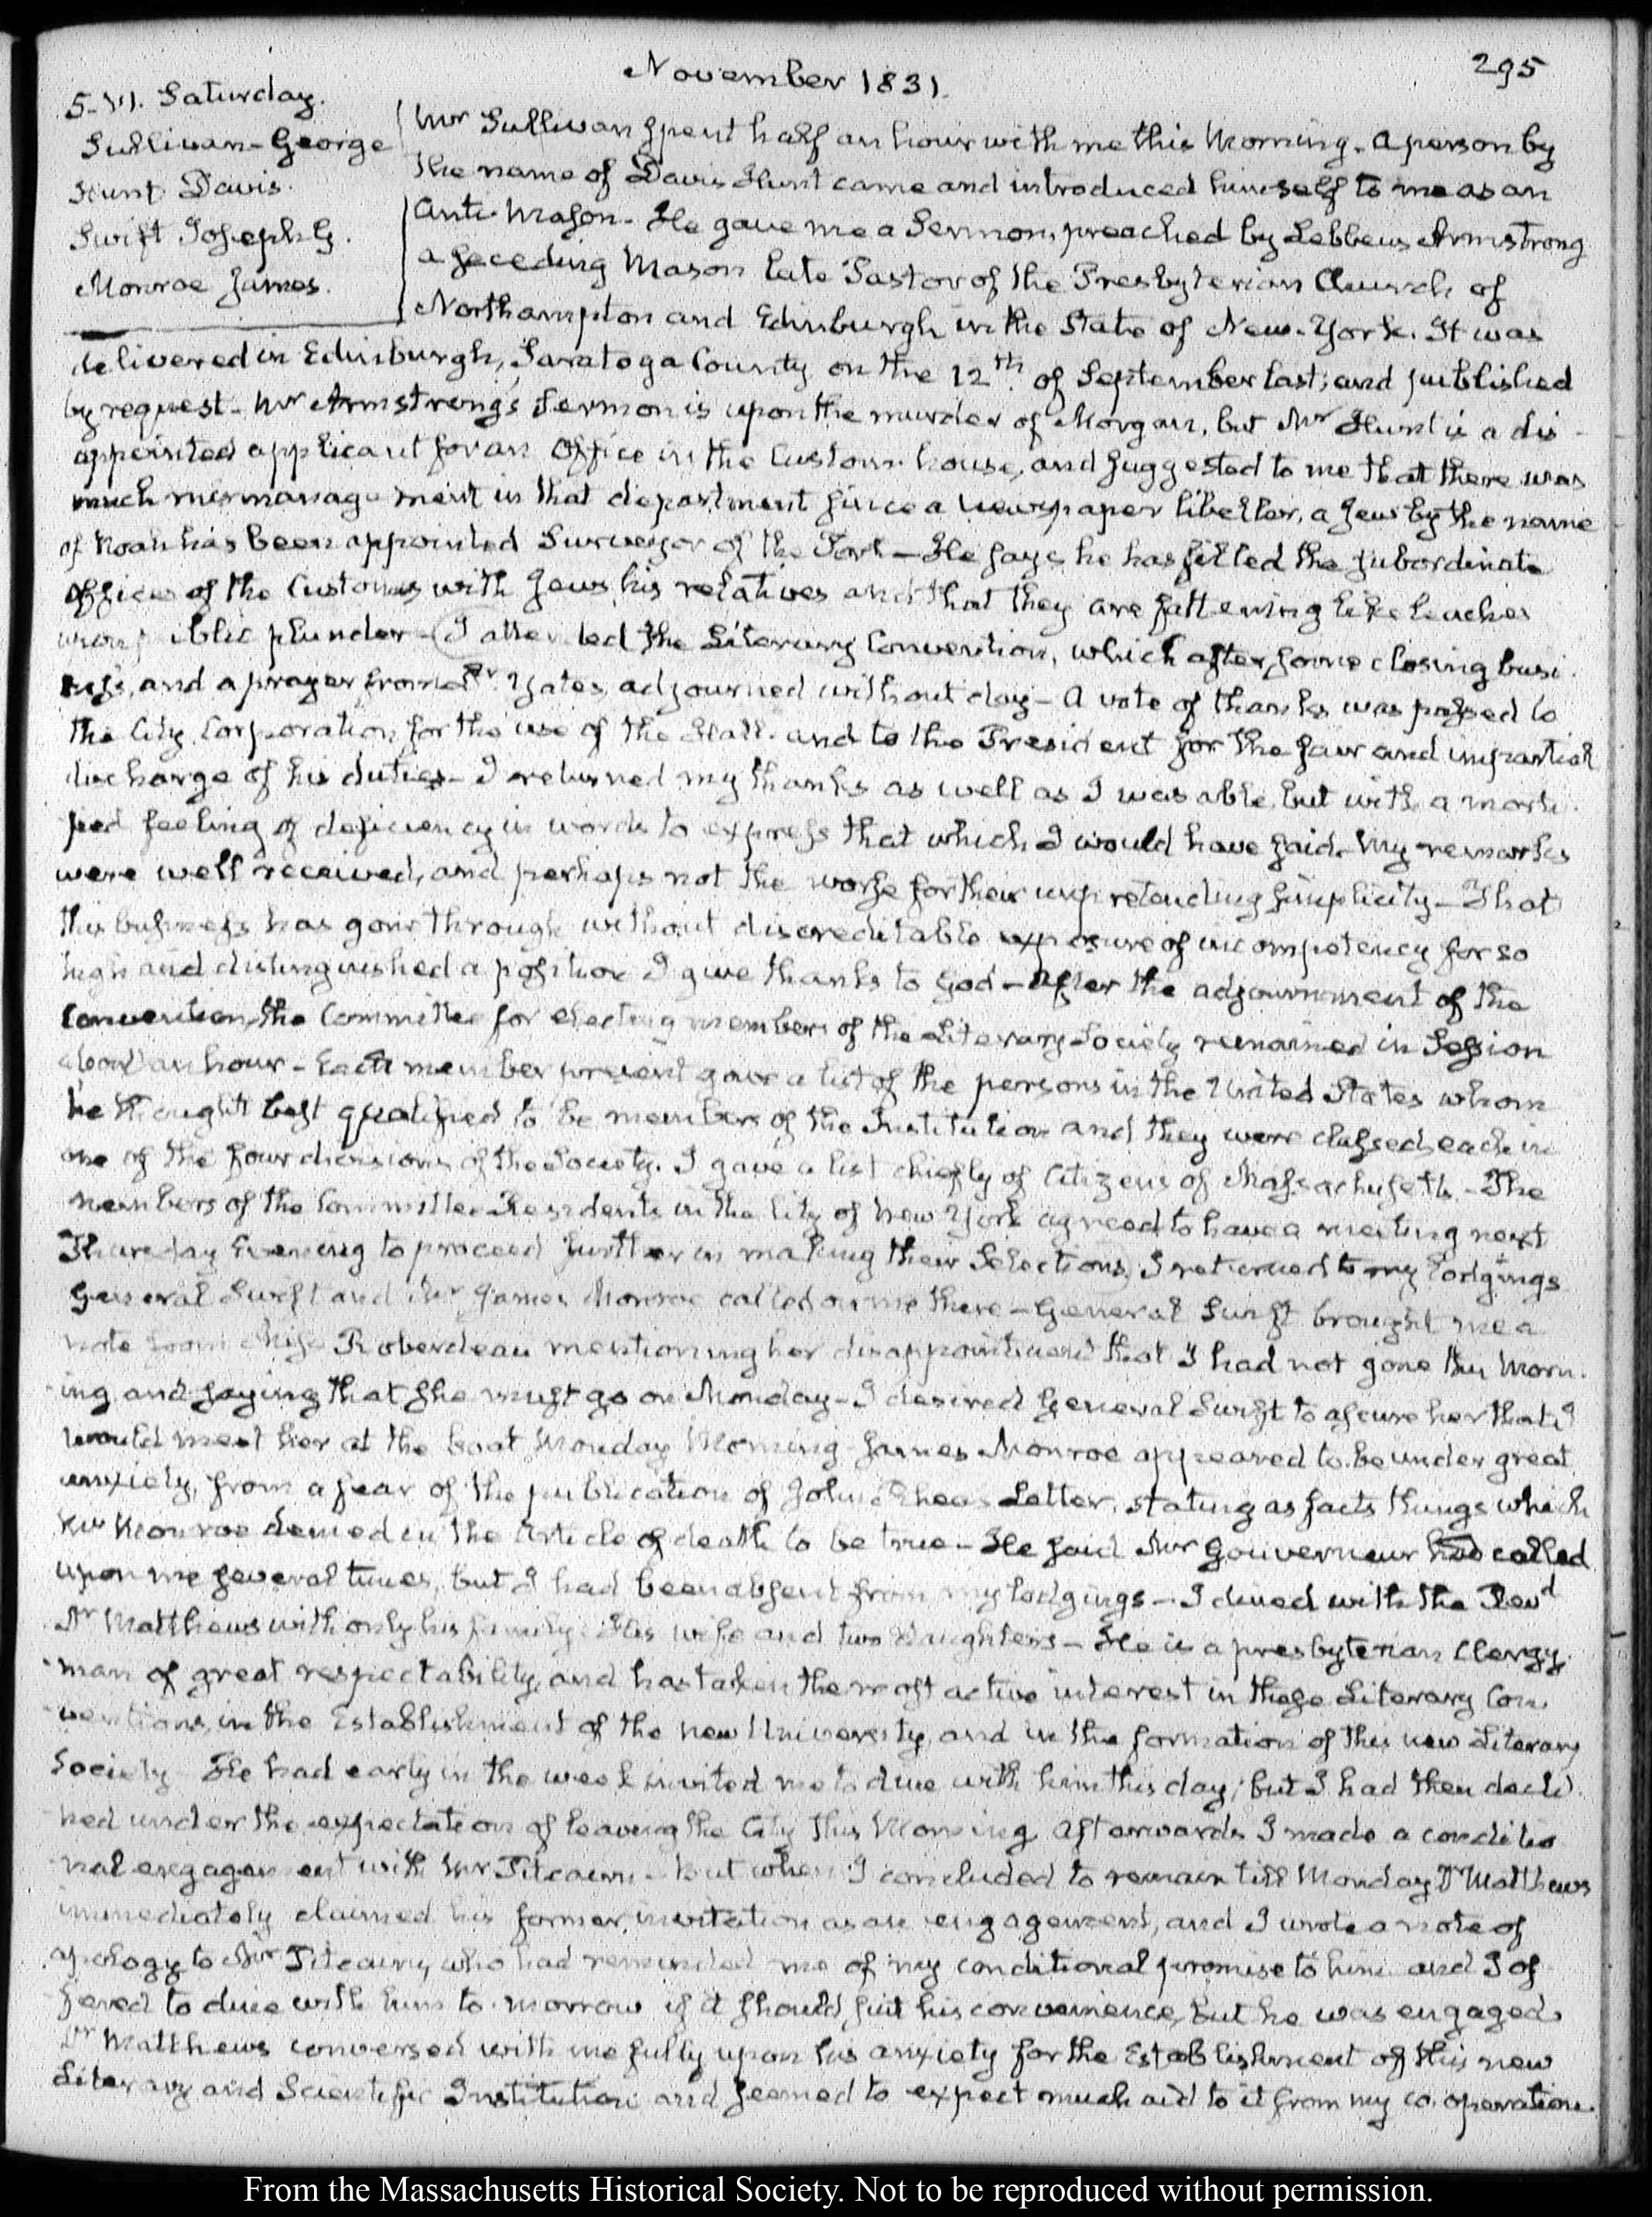 November 1831.
295
5. VI. Saturday.
Sullivan - George
Hunt Davis.
Swift Joseph G.
Monroe James.
Mr Sullivan spent half an hour with me this Morning. A person by
the name of Davis Hunt came and introduced himself to me as an
Anti-Mason - He gave me a Sermon, preached by Lebbeus Armstrong
a seceding Mason late Pastor of the Presbyterian Church of
Northampton and Edinburgh in the State of New-York. It was
delivered in Edinburgh, Saratoga County on the 12th. of September last; and published
by request - Mr Armstrong's Sermon is upon the murder of Morgan, but Mr Hunt is a dis-
appointed applicant for an Office in the Custom-house, and suggested to me that there was
much mismanagement in that department since a newspaper libeller, a Jew by the name
of Noah has been appointed Surveyor of the Port - He says he has filled the subordinate
Offices of the Customs with Jews, his relatives and that they are fattening like leaches
upon public plunder - I attended the Literary Convention, which after some closing busi-
ness, and a prayer from Dr Yates, adjourned without day - A vote of thanks was passed to
the City Corporation, for the use of the Hall. and to the President for the fair and impartial
discharge of his duties - I returned my thanks as well as I was able, but with a morti-
fied feeling of deficiency in words to express that which I would have said - My remarks
were well received, and perhaps not the worse for their unpretending simplicity - That
this business has gone through without discreditable exposure of incompetency for so
high and distinguished a position I give thanks to God - After the adjournment of the
Convention, the Committee for electing members of the Literary Society remained in Session
about an hour - Each member present gave a list of the persons in the United States whom
he thought best qualified to be members of the Institution and they were classed each in
one of the four divisions of the Society. I gave a list chiefly of Citizens of Massachusetts - The
members of the Committee Residents in the City of New York agreed to have a meeting next
Thursday Evening to proceed further in making their Selections, I returned to my lodgings
General Swift and Mr James Monroe called on me there - General Swift brought me a
note from Miss Roberdeau mentioning her disappointment that I had not gone this Morn-
ing and saying that she must go on Monday - I desired General Swift to assure her that I
would meet her at the boat Monday Morning - James Monroe appeared to be under great
anxiety, from a fear of the publication of John Rhea's Letter, stating as facts things which
Mr Monroe denied in the Article of death to be true - He said Mr Gouverneur had called
upon me several times, but I had been absent from my lodgings - I dined with the Revd
Dr Matthews with only his family. His wife and two Daughters - He is a presbyterian Clergy-
man of great respectability, and has taken the most active interest in these Literary Con-
ventions, in the Establishment of the new University, and in the formation of this new Literary
Society He had early in the week invited me to dine with him this day; but I had then decli-
ned under the expectation of leaving the City this Morning. Afterwards I made a conditio-
nal engagement with Mr Pitcairn - but when I concluded to remain till Monday Dr Matthews
immediately claimed his former invitation as an engagement, and I wrote a note of
apology to Mr Pitcairn, who had reminded me of my conditional promise to him and I of-
fered to dine with him to-morrow if it should suit his convenience, but he was engaged
Dr Matthews conversed with me fully upon his anxiety for the Establishment of this new
Literary and Scientific Institution and seemed to expect much aid to it from my co-operation.
From the Massachusetts Historical Society. Not to be reproduced without permission.